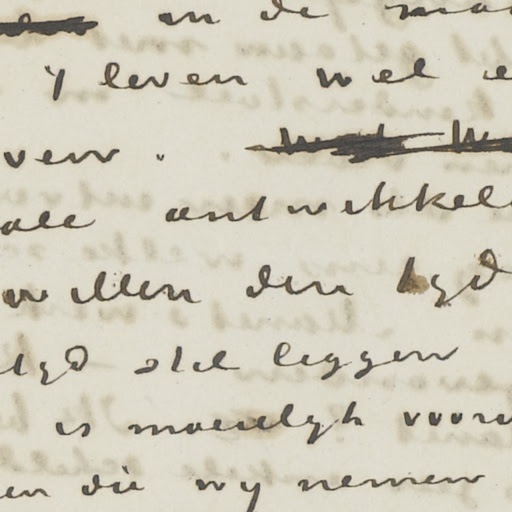 in de
y leven wel
ven.
ale ontwikkel
willen den tyd
tyd stil leggen
is moeielyk voor
en die wy nemen